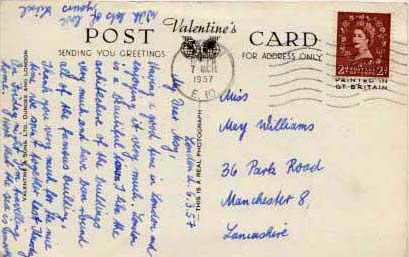 POST Valentine's CARD
SENDING YOU GREETINGS
FOR ADDRESS ONLY
7 MCH
1957
E.10
PRINTED IN
GT BRITAIN
Miss
May Williams
36 Park Road
Manchester 8
Lancashire
THIS IS A REAL PHOTOGRAPH
VALENTINE & SONS LTD. DUNDEE AND LONDON
London d. 6.3.57
My Dear May,
Having a good time in London and
enjoying it very much. London
is a beautiful town I like the
architecture of the buildings
very much and have been round
all of the famous building.
Thank you very much for the nice
time we spent together last Thursday
On Sunday night I am travelling
home. that the sea is smooth
With lots of love
yours